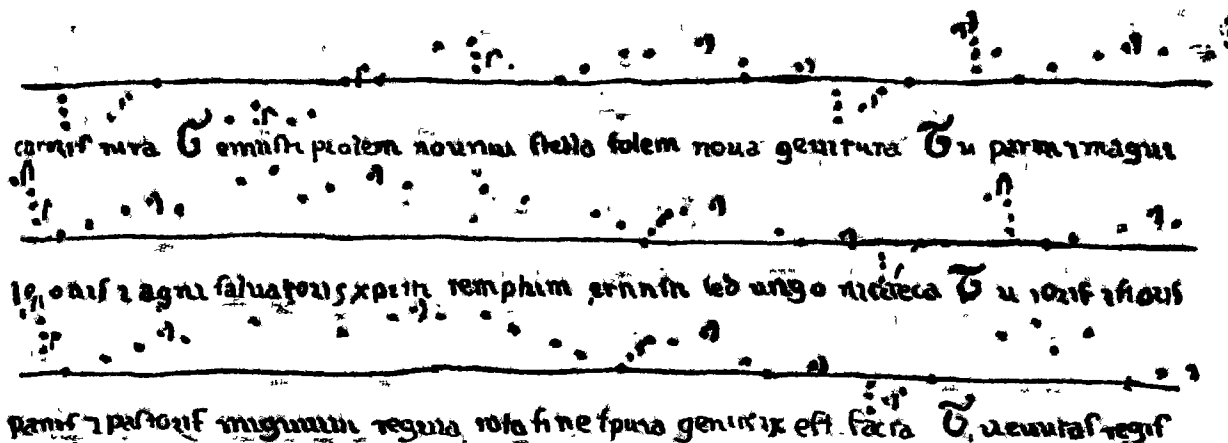 carnis iura Genuisti prolem nouum stella solem noua genitura Tu parui ⁊ magni
leonis ⁊ agni saluatoris xpisti templum sed uirgo Tu roris ⁊ floris
panis ⁊ pastoris uirginum regina rosa sine spina genitrix est facta Tu ciuitas regis